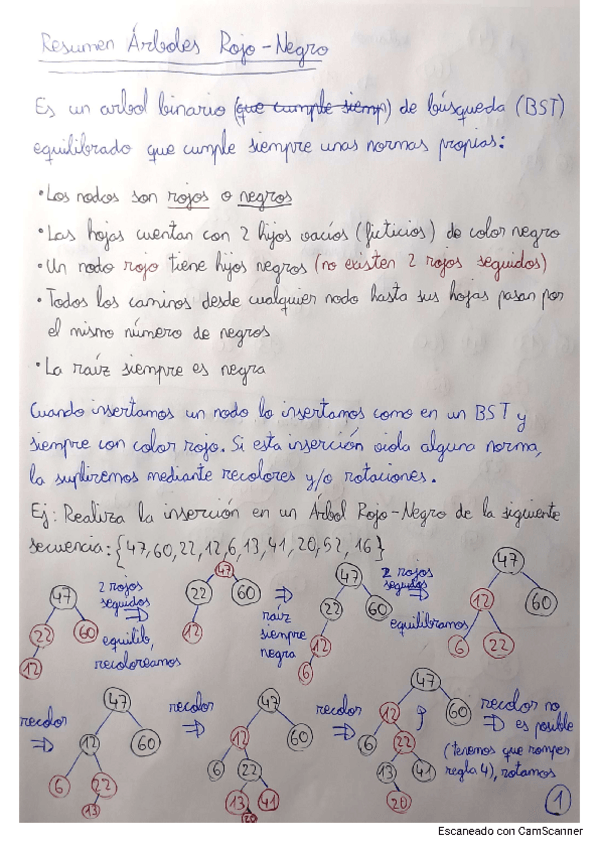 Resumen Árboles Rojo-Negro
Es un arbol binario (que cumple siemp) de búsqueda (BST)
equilibrado que cumple siempre unas normas propias:
• Los nodos son rojos o negros
• Las hojas cuentan con 2 hijos vacíos (ficticios) de color negro
• Un nodo rojo tiene hijos negros (no existen 2 rojos seguidos)
• Todos los caminos desde cualquier nodo hasta sus hojas pasan por
el mismo número de negros
• La raíz siempre es negra
Cuando insertamos un nodo lo insertamos como en un BST y
siempre con color rojo. Si esta inserción viola alguna norma,
la supliremos mediante recolores y/o rotaciones.
Ej: Realiza la inserción en un Árbol Rojo-Negro de la siguiente
secuencia: {47,60,22,12,6,13,41,20,52,16}
47
22 60
12
2 rojos
seguidos
⇒
equilib,
recoloreamos
47
22 60
12
⇒
raíz
siempre
negra
47
22 60
12
6
2 rojos
seguidos
⇒
equilibramos
47
12 60
6 22
recolor
⇒
47
12 60
6 22
13
recolor
⇒
47
12 60
6 22
13 41
20
recolor
⇒
47
12 60
6 22
13 41
20
recolor no
⇒ es posible
(tenemos que romper
regla 4), rotamos
1
Escaneado con CamScanner